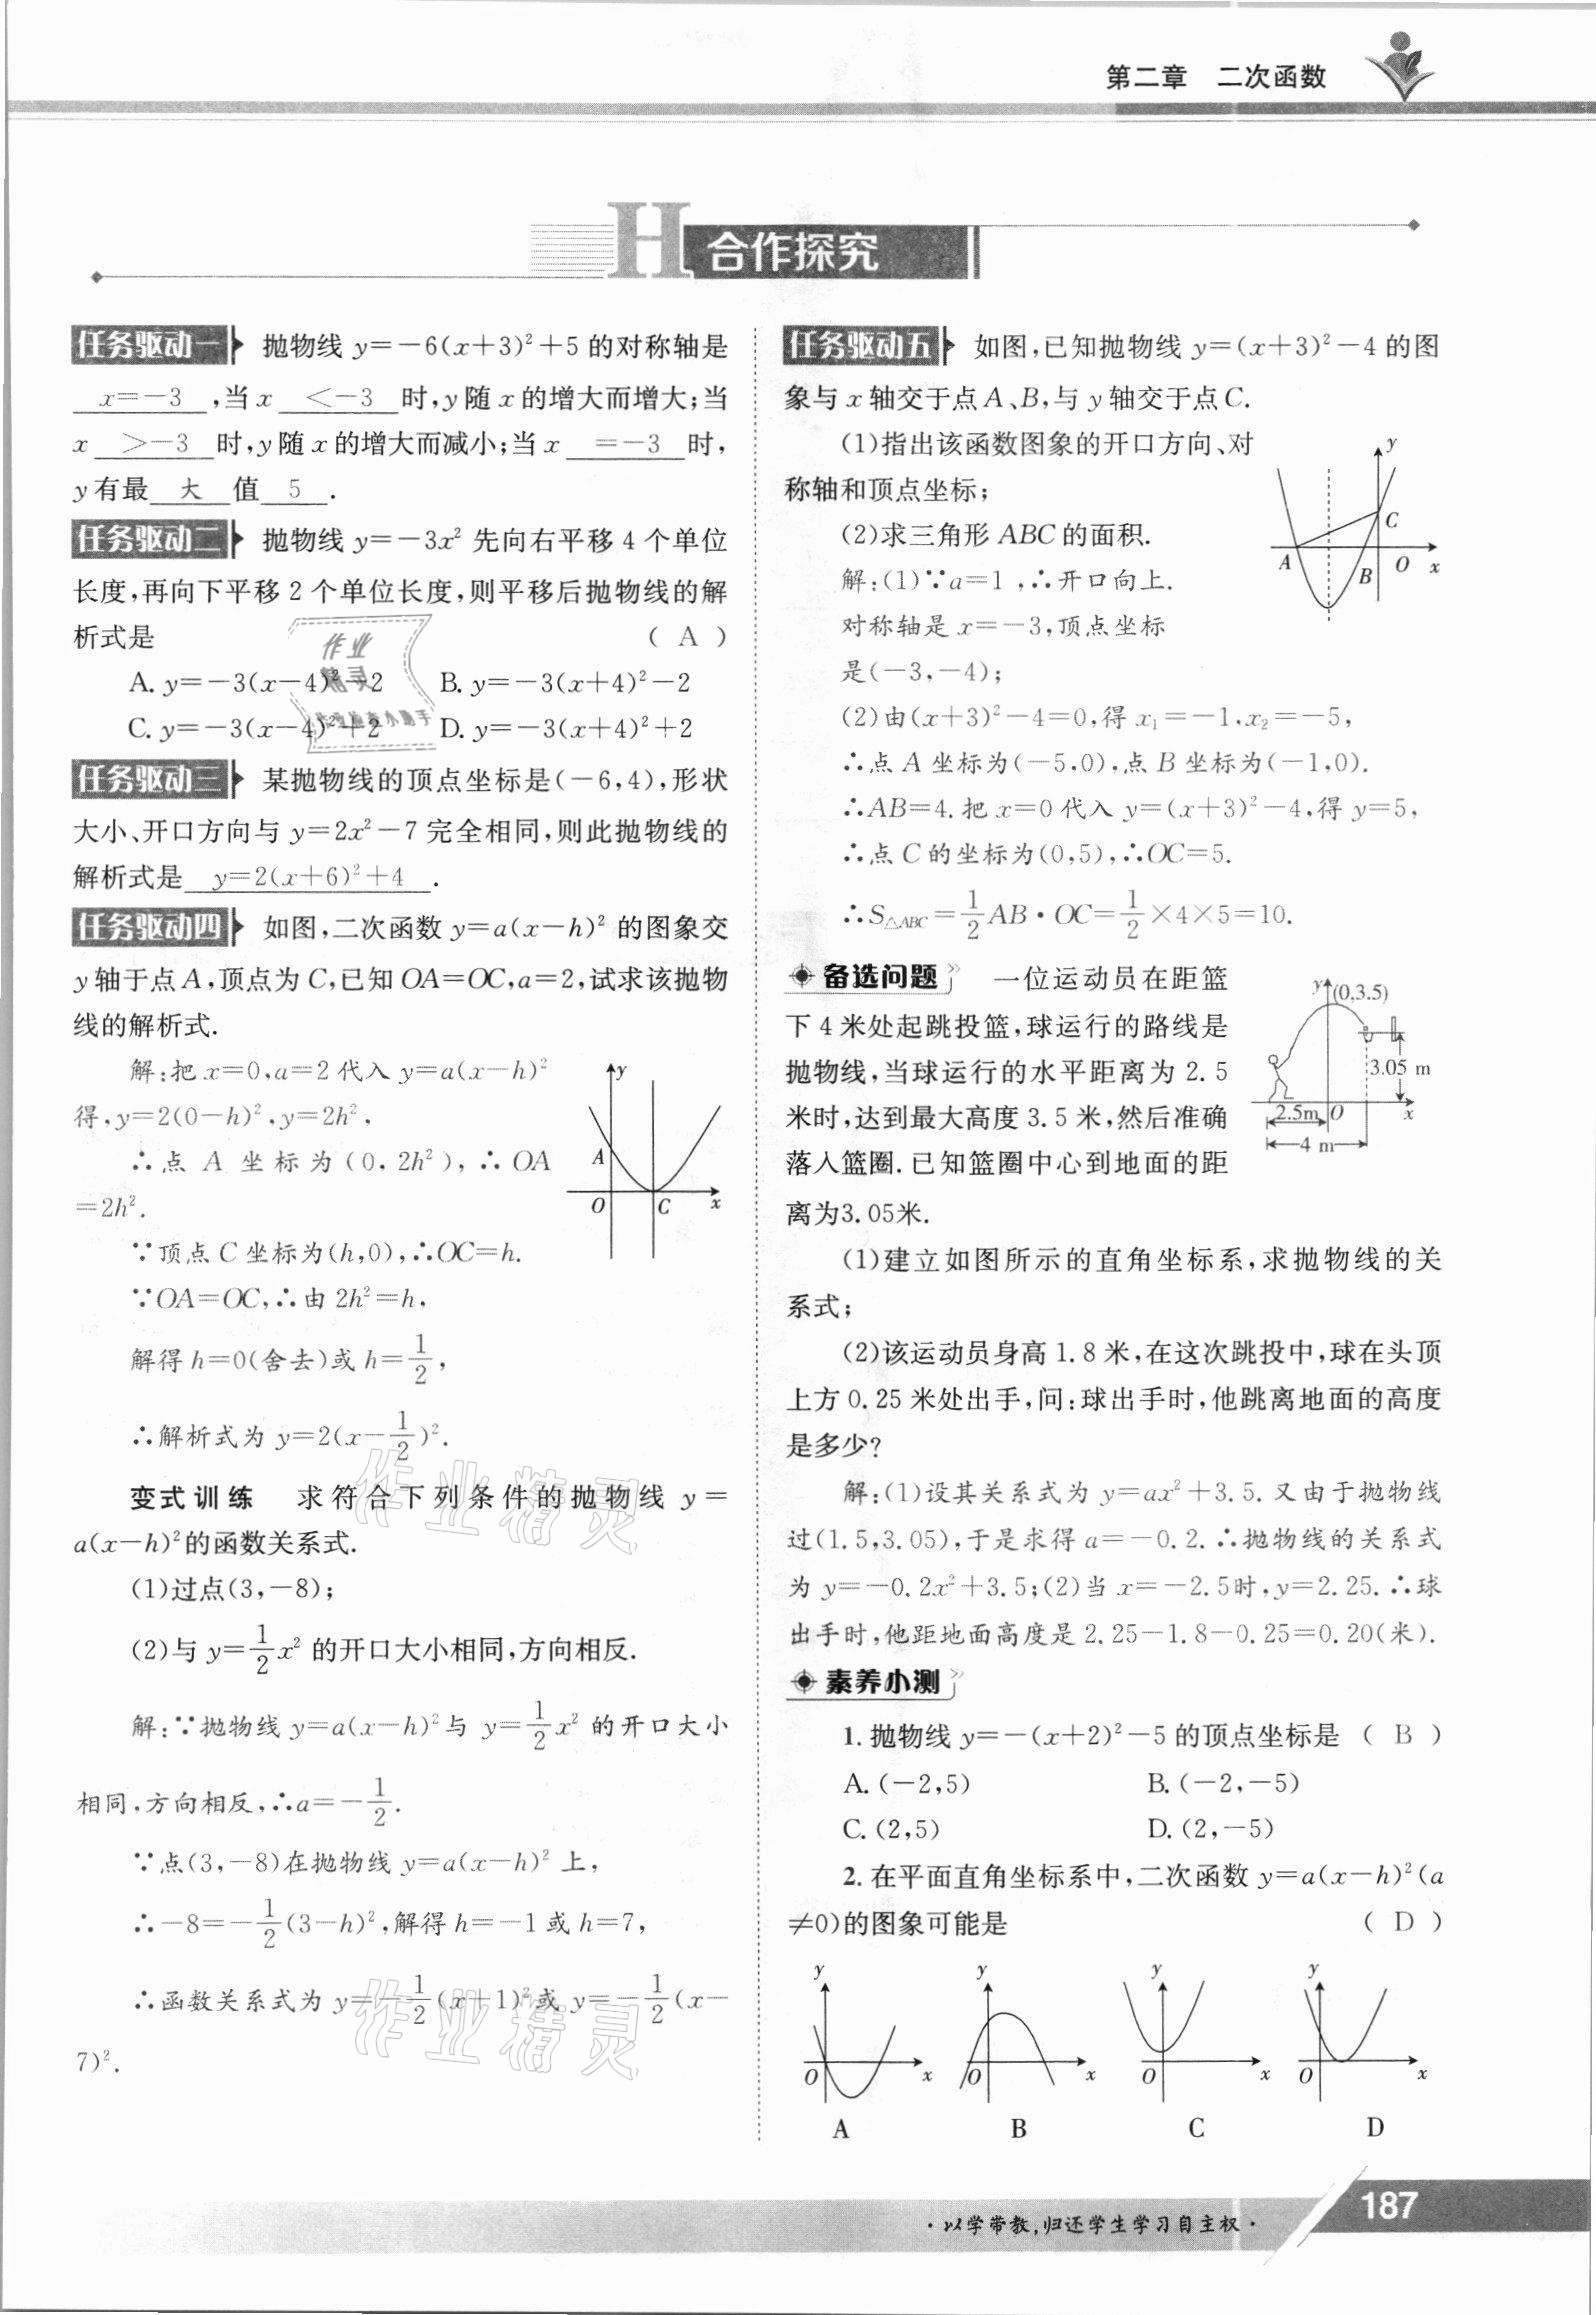 第二章 二次函数
H 合作探究
任务驱动一 抛物线 y=-6(x+3)²+5 的对称轴是
x=-3 ,当 x <-3 时,y 随 x 的增大而增大;当
x >-3 时,y 随 x 的增大而减小;当 x =-3 时,
y 有最 大 值 5 .
任务驱动二 抛物线 y=-3x² 先向右平移 4 个单位
长度,再向下平移 2 个单位长度,则平移后抛物线的解
析式是 ( A )
A. y=-3(x-4)²-2 B. y=-3(x+4)²-2
C. y=-3(x-4)²+2 D. y=-3(x+4)²+2
任务驱动三 某抛物线的顶点坐标是(-6,4),形状
大小、开口方向与 y=2x²-7 完全相同,则此抛物线的
解析式是 y=2(x+6)²+4 .
任务驱动四 如图,二次函数 y=a(x-h)² 的图象交
y 轴于点 A,顶点为 C,已知 OA=OC,a=2,试求该抛物
线的解析式.
解:把 x=0,a=2 代入 y=a(x-h)²
得,y=2(0-h)²,y=2h²,
∴点 A 坐标为(0,2h²),∴OA
=2h².
∵顶点 C 坐标为(h,0),∴OC=h.
∵OA=OC,∴由 2h²=h,
解得 h=0(舍去)或 h=1/2,
∴解析式为 y=2(x-1/2)².
y
A
O C x
变式训练 求符合下列条件的抛物线 y=
a(x-h)²的函数关系式.
(1)过点(3,-8);
(2)与 y=1/2x² 的开口大小相同,方向相反.
解:∵抛物线 y=a(x-h)²与 y=1/2x² 的开口大小
相同,方向相反,∴a=-1/2.
∵点(3,-8)在抛物线 y=a(x-h)² 上,
∴-8=-1/2(3-h)²,解得 h=-1 或 h=7,
∴函数关系式为 y=-1/2(x+1)²或 y=-1/2(x-
7)².
任务驱动五 如图,已知抛物线 y=(x+3)²-4 的图
象与 x 轴交于点 A、B,与 y 轴交于点 C.
(1)指出该函数图象的开口方向、对
称轴和顶点坐标;
(2)求三角形 ABC 的面积.
解:(1)∵a=1 ,∴开口向上.
对称轴是 x=-3,顶点坐标
是(-3,-4);
(2)由(x+3)²-4=0,得 x₁=-1,x₂=-5,
∴点 A 坐标为(-5,0),点 B 坐标为(-1,0).
∴AB=4.把 x=0 代入 y=(x+3)²-4,得 y=5,
∴点 C 的坐标为(0,5),∴OC=5.
∴S△ABC=1/2AB·OC=1/2×4×5=10.
y
C
A B O x
备选问题 一位运动员在距篮
下 4 米处起跳投篮,球运行的路线是
抛物线,当球运行的水平距离为 2.5
米时,达到最大高度 3.5 米,然后准确
落入篮圈.已知篮圈中心到地面的距
离为3.05米.
y (0,3.5)
3.05 m
2.5m O x
4 m
(1)建立如图所示的直角坐标系,求抛物线的关
系式;
(2)该运动员身高 1.8 米,在这次跳投中,球在头顶
上方 0.25 米处出手,问:球出手时,他跳离地面的高度
是多少?
解:(1)设其关系式为 y=ax²+3.5.又由于抛物线
过(1.5,3.05),于是求得 a=-0.2.∴抛物线的关系式
为 y=-0.2x²+3.5;(2)当 x=-2.5时,y=2.25.∴球
出手时,他距地面高度是 2.25-1.8-0.25=0.20(米).
素养小测
1. 抛物线 y=-(x+2)²-5 的顶点坐标是 ( B )
A. (-2,5) B. (-2,-5)
C. (2,5) D. (2,-5)
2. 在平面直角坐标系中,二次函数 y=a(x-h)²(a
≠0)的图象可能是 ( D )
y y y y
O x O x O x O x
A B C D
·以学带教,归还学生学习自主权·
187
作业
精灵
作业检查小助手
作业精灵
作业精灵